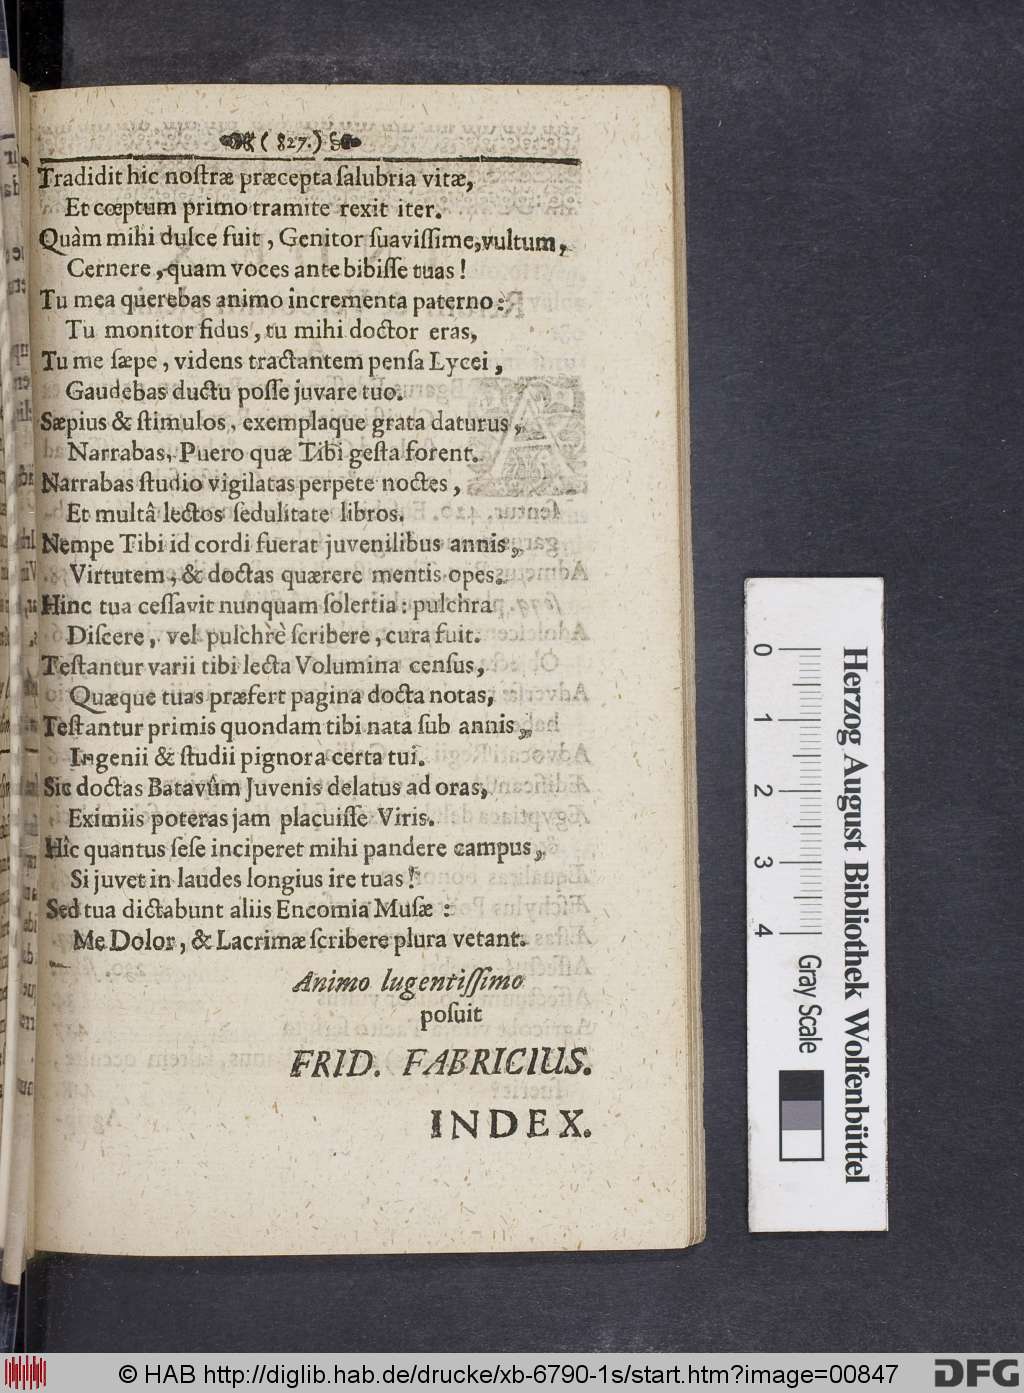 ( 827. )
Tradidit hic noſtræ præcepta ſalubria vitæ,
Et cœptum primo tramite rexit iter.
Quàm mihi dulce fuit, Genitor ſuaviſſime, vultum,
Cernere, quam voces ante bibiſſe tuas!
Tu mea querebas animo incrementa paterno:
Tu monitor fidus, tu mihi doctor eras,
Tu me ſæpe, videns tractantem penſa Lycei,
Gaudebas ductu poſſe juvare tuo.
Sæpius & ſtimulos, exemplaque grata daturus,
Narrabas, Puero quæ Tibi geſta forent.
Narrabas ſtudio vigilatas perpete noctes,
Et multâ lectos ſedulitate libros.
Nempe Tibi id cordi fuerat juvenilibus annis,
Virtutem, & doctas quærere mentis opes.
Hinc tua ceſſavit nunquam ſolertia: pulchra
Diſcere, vel pulchrè ſcribere, cura fuit.
Teſtantur varii tibi lecta Volumina cenſus,
Quæque tuas præfert pagina docta notas,
Teſtantur primis quondam tibi nata ſub annis,
Ingenii & ſtudii pignora certa tui.
Sic doctas Batavûm Juvenis delatus ad oras,
Eximiis poteras jam placuiſſe Viris.
Hîc quantus ſeſe inciperet mihi pandere campus,
Si juvet in laudes longius ire tuas!
Sed tua dictabunt aliis Encomia Muſæ:
Me Dolor, & Lacrimæ ſcribere plura vetant.
Animo lugentiſſimo
poſuit
FRID. FABRICIUS.
INDEX.
0 1 2 3 4
Gray Scale
Herzog August Bibliothek Wolfenbüttel
© HAB http://diglib.hab.de/drucke/xb-6790-1s/start.htm?image=00847
DFG